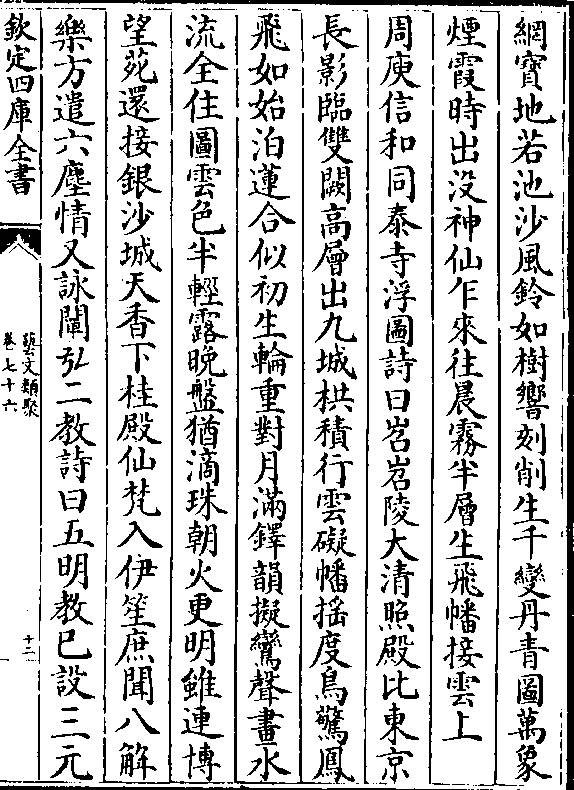 網寳地若池沙風鈴如樹響刻削生千變丹青圖萬象
煙霞時出没神仙乍來往晨霧半層生飛幡接雲上
周庾信和同泰寺浮圖詩曰岧岧陵大清照殿比東京
長影臨雙闕髙層出九城栱積行雲礙幡揺度鳥驚鳳
飛如始泊蓮合似初生輪重對月滿鐸韻擬鸞聲畫水
流全住圖雲色半輕露晚盤猶滴珠朝火更明雖連博
望苑還接銀沙城天香下桂殿仙梵入伊笙庶聞八解
樂方遣六塵情又詠闡弘二教詩曰五明教已設三元
欽定四庫全書
藝文類聚
卷七十六
十二